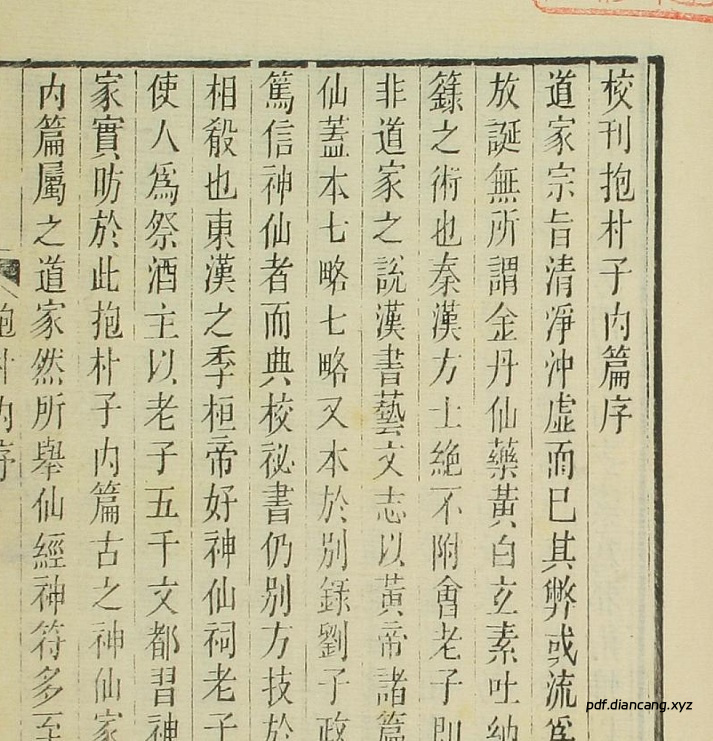 校刊抱朴子内篇序
道家宗旨清凈沖虛而已其弊或流爲
放誕無所謂金丹仙藥黃白玄素吐納
籙之術也秦漢方士絶不附會老子即
非道家之說漢書藝文志以黃帝諸篇
仙蓋本七略七略又本於别錄劉子政
篤信神仙者而典校祕書仍别方技於
相殽也東漢之季桓帝好神仙祠老子
使人爲祭酒主以老子五千文都習神
家實昉於此抱朴子内篇古之神仙家
内篇屬之道家然所舉仙經神符多至
抱朴内序
pdf.diancang.xyz